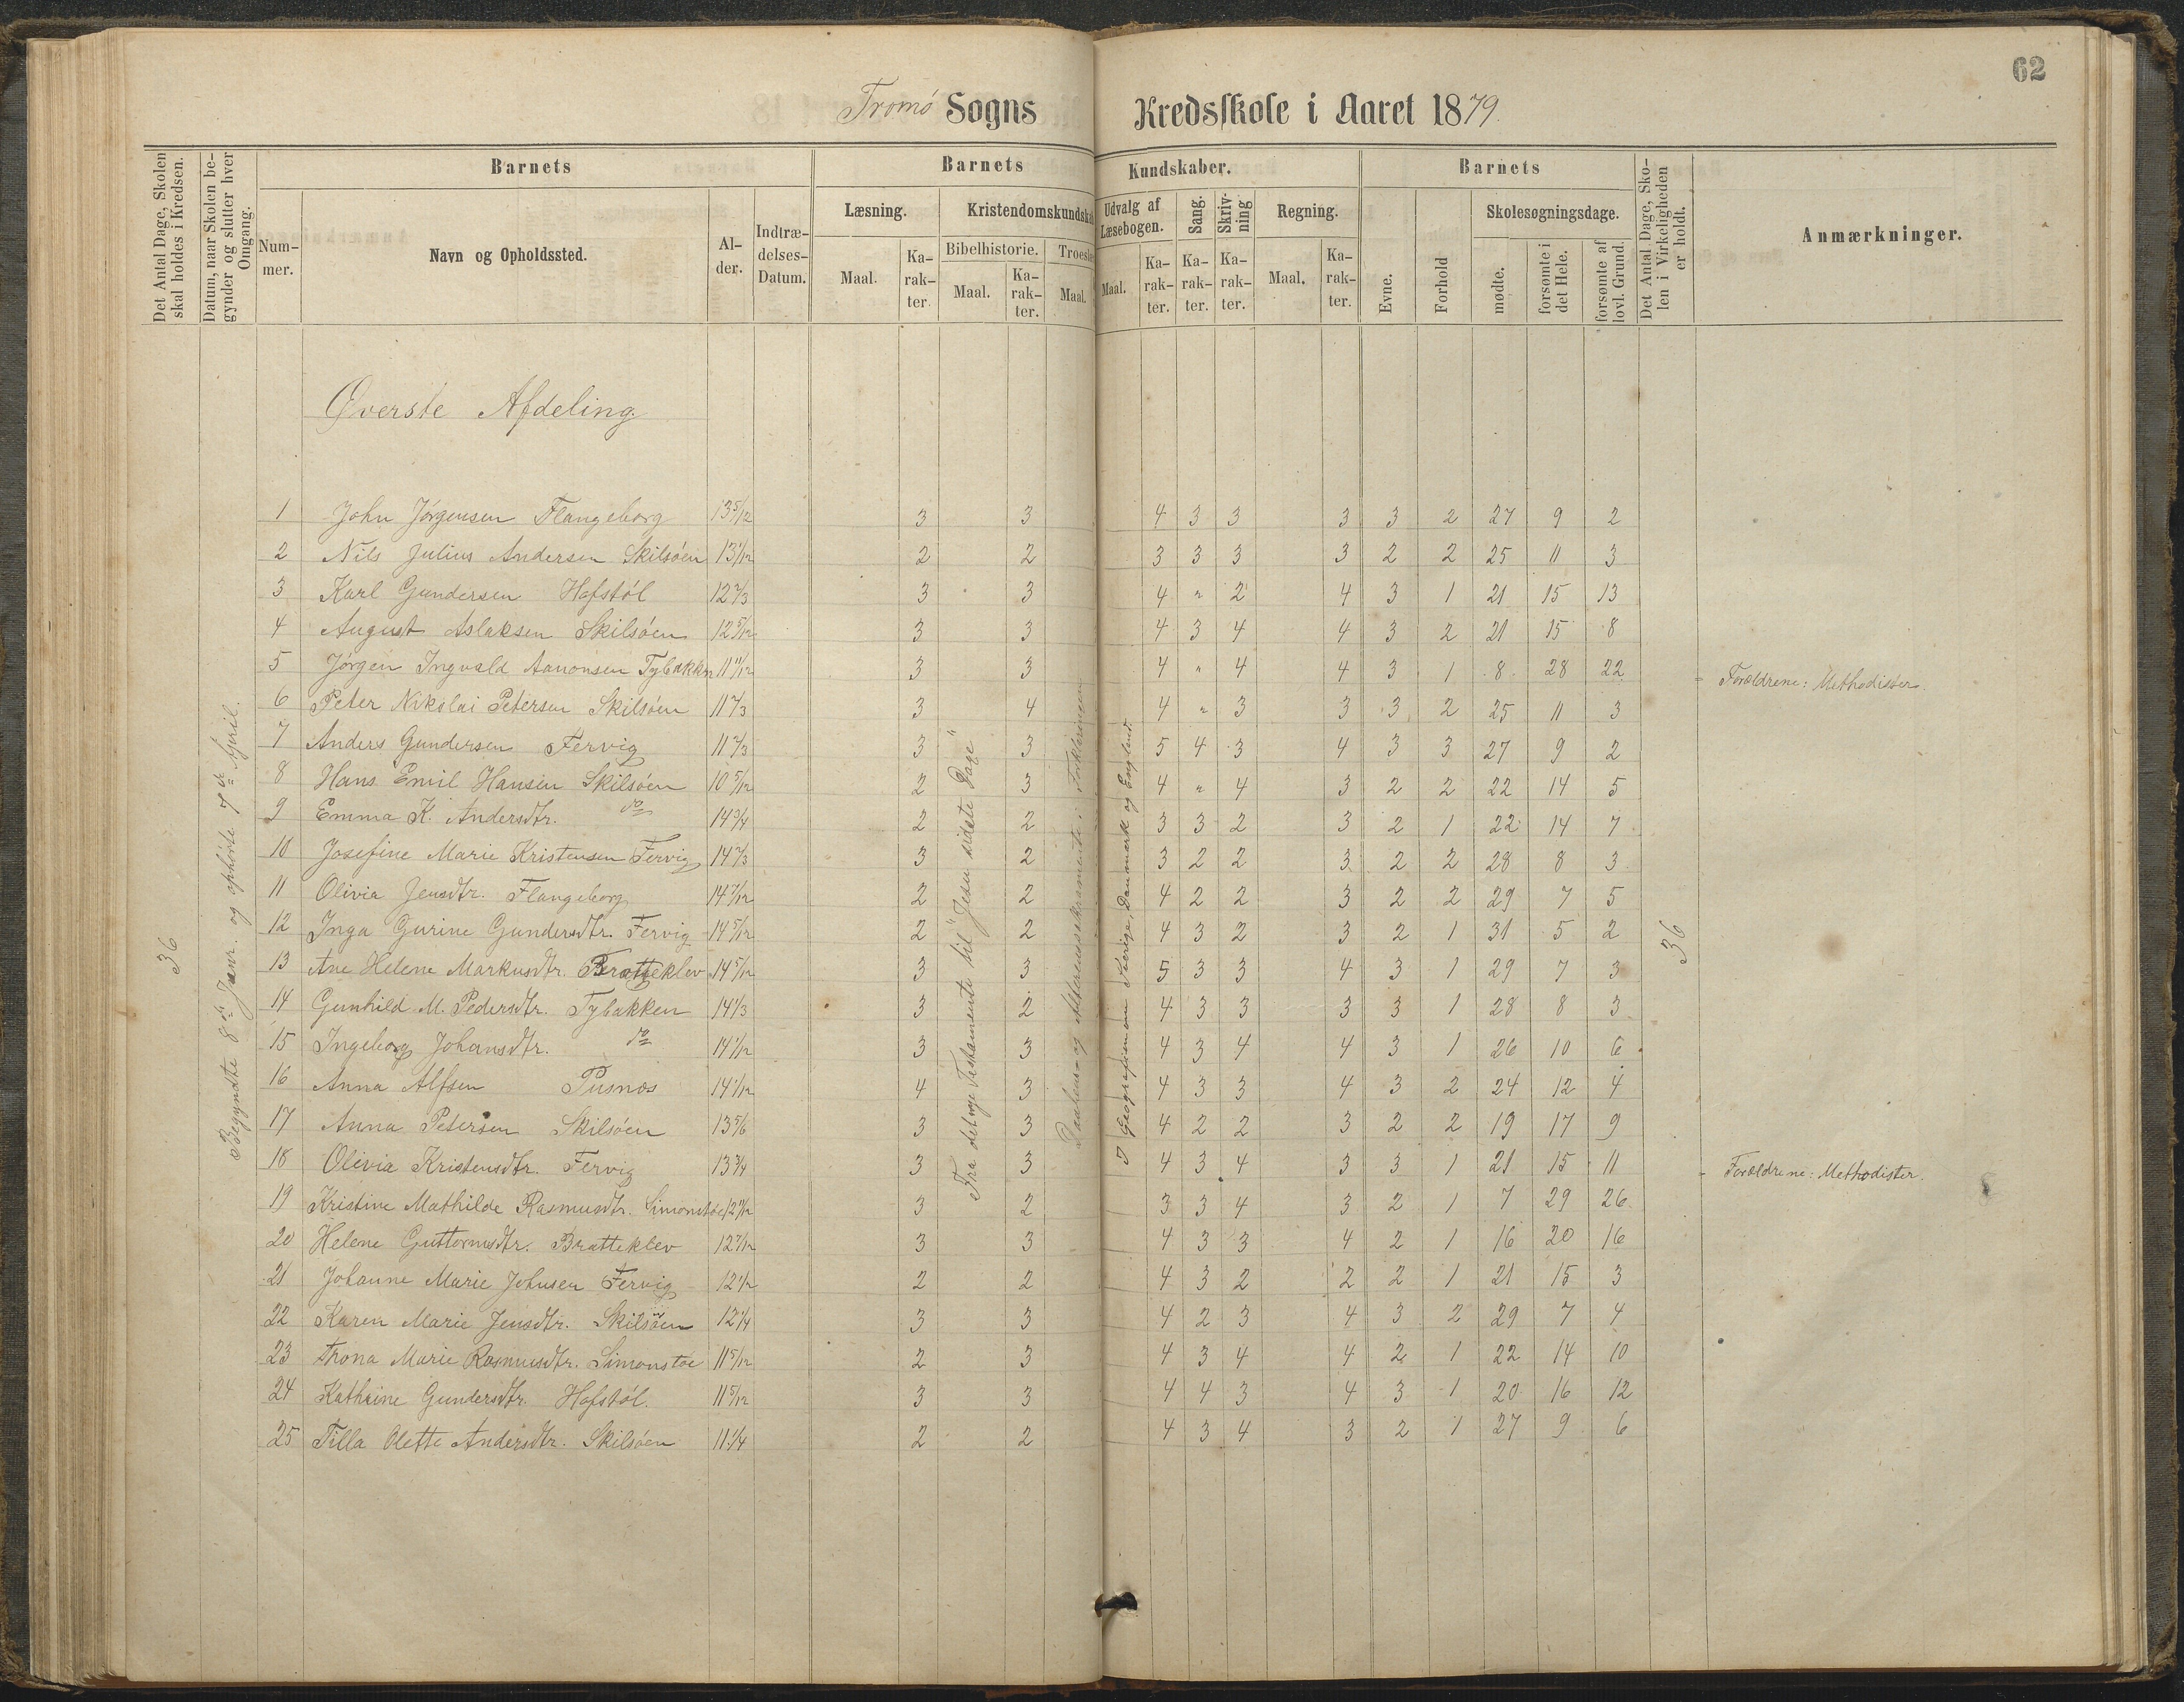 62
Tromø Sogns Kredsskole i Aaret 1879.
Det Antal Dage, Skolen skal holdes i Kredsen.
Datum, naar Skolen begynder og slutter hver Omgang.
Barnets
Nummer.
Navn og Opholdssted.
Alder.
Indtrædelses-Datum.
Barnets Kundskaber.
Læsning.
Maal.
Karakter.
Kristendomskundskab
Bibelhistorie.
Maal.
Karakter.
Troes
Maal.
Udvalg af Læsebogen.
Maal.
Karakter.
Sang.
Karakter.
Skrivning
Karakter.
Regning.
Maal.
Karakter.
Barnets
Evne.
Forhold
Skolesøgningsdage.
mødte.
forsømte i det Hele.
forsømte af lovl. Grund.
Det Antal Dage, Skolen i Virkeligheden er holdt.
Anmærkninger.
Øverste Afdeling.
36
Begyndte 8de Janr. og ophørte 7de April.
Fra det nye Testamente til "Jesu sidste Dage"
Daabens- og Alterens Sakramente i Forklaringen
I Geografien om Sverige, Danmark og England.
36
1 John Jørgensen Flangeborg 13 5/12 3 3 4 3 3 3 3 2 27 9 2
2 Nils Julius Andersen Skilsøen 13 1/12 2 2 3 3 3 3 2 2 25 11 3
3 Karl Gundersen Hofstøl 12 2/3 3 3 4 " 2 4 3 1 21 15 13
4 August Aslaksen Skilsøen 12 5/12 3 3 4 3 4 4 3 2 21 15 8
5 Jørgen Ingvald Aanonsen Tybakken 11 11/12 3 3 4 " 4 4 3 1 8 28 22 Forældrene: Methodister.
6 Peter Nikolai Petersen Skilsøen 11 2/3 3 4 4 " 3 3 3 2 25 11 3
7 Anders Gundersen Fervig 11 2/3 3 3 5 4 3 4 3 3 27 9 2
8 Hans Emil Hansen Skilsøen 10 5/12 2 3 4 " 4 3 2 2 22 14 5
9 Emma K. Andersdtr. do 14 3/4 2 2 3 3 2 3 2 1 22 14 7
10 Josefine Marie Kristensen Fervig 14 2/3 3 2 3 2 2 3 2 2 28 8 3
11 Olivia Jensdtr. Flangeborg 14 7/12 2 2 4 2 2 3 2 2 29 7 5
12 Inga Gurine Gundersdtr. Fervig 14 5/12 2 2 4 3 2 3 2 1 31 5 2
13 Ane Helene Markusdtr. Bratteklev 14 5/12 3 3 5 3 3 4 3 1 29 7 3
14 Gunhild M. Pedersdtr. Tybakken 14 1/3 3 2 4 3 3 3 3 1 28 8 3
15 Ingeborg Johansdtr. do 14 1/12 3 3 4 3 4 4 3 1 26 10 6
16 Anna Alfsen Pusnæs 14 1/12 4 3 4 3 3 4 3 2 24 12 4
17 Anna Petersen Skilsøen 13 5/6 3 3 4 2 2 3 2 2 19 17 9
18 Olivia Kristensdtr. Fervig 13 3/4 3 3 4 3 4 3 3 1 21 15 11 Forældrene: Methodister.
19 Kristine Mathilde Rasmusdtr. Simonstøe 12 11/12 3 2 3 3 4 3 2 1 7 29 26
20 Helene Guttormsdtr. Bratteklev 12 7/12 3 3 4 3 3 4 2 1 16 20 16
21 Johanne Marie Johnsen Fervig 12 1/2 2 2 4 3 2 2 2 1 21 15 3
22 Karen Marie Jensdtr. Skilsøen 12 1/4 3 3 4 2 3 4 3 2 29 7 4
23 Trona Marie Rasmusdtr. Simonstøe 11 5/12 2 3 4 3 4 4 2 1 22 14 10
24 Kathrine Gundersdtr. Hofstøl. 11 5/12 3 3 4 4 3 4 3 1 20 16 12
25 Tilla Olette Andersdtr. Skilsøen 11 1/4 2 2 4 3 4 3 2 1 27 9 6